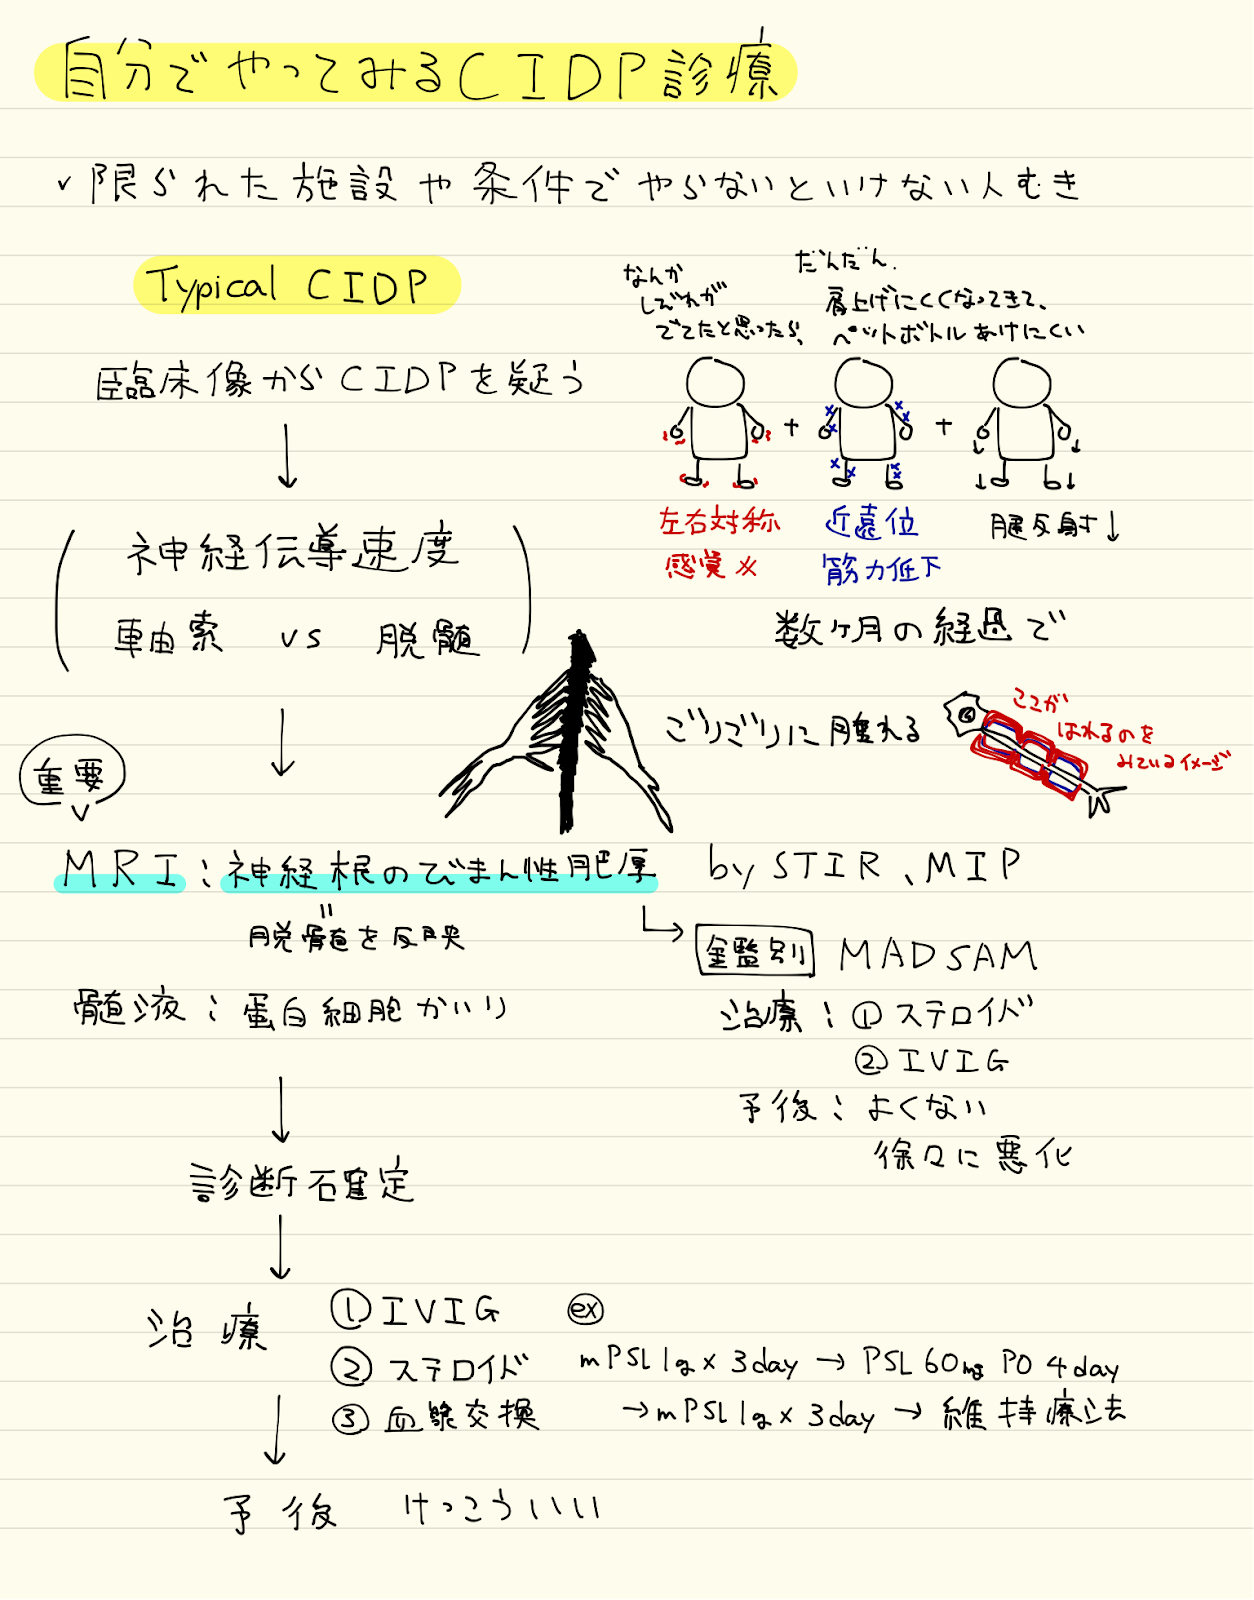 自分でやってみるCIDP診療
✓ 限られた施設や条件でやらないといけない人むき
Typical CIDP
臨床像からCIDPを疑う
↓
神経伝導速度
軸索 vs 脱髄
↓
なんか
しびれが
でてたと思ったら、
だんだん、
肩上げにくくなってきて、
ペットボトルあけにくい
+ +
左右対称
感覚×
近遠位
筋力低下
腱反射↓
数ヶ月の経過で
ごりごりに腫れる
ここが
はれるのを
みているイメージ
重要
MRI：神経根のびまん性肥厚 by STIR、MIP
脱髄を反映
髄液：蛋白細胞かいり
鑑別 MADSAM
治療：①ステロイド
②IVIG
予後：よくない
徐々に悪化
↓
診断確定
↓
治療 ①IVIG
②ステロイド
③血漿交換
ex
mPSL 1g×3day→PSL 60mg PO 4day
→mPSL 1g×3day→維持療法
↓
予後 けっこういい